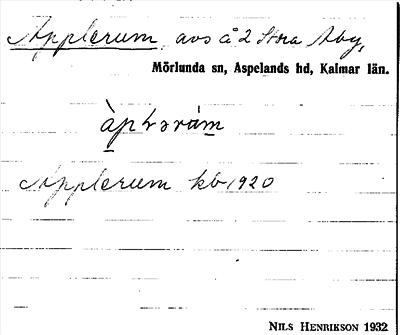 Applerum, avs å 2 Stora Aby,
Mörlunda sn, Aspelands hd, Kalmar län.
Applerum kb 1920
NILS HENRIKSON 1932